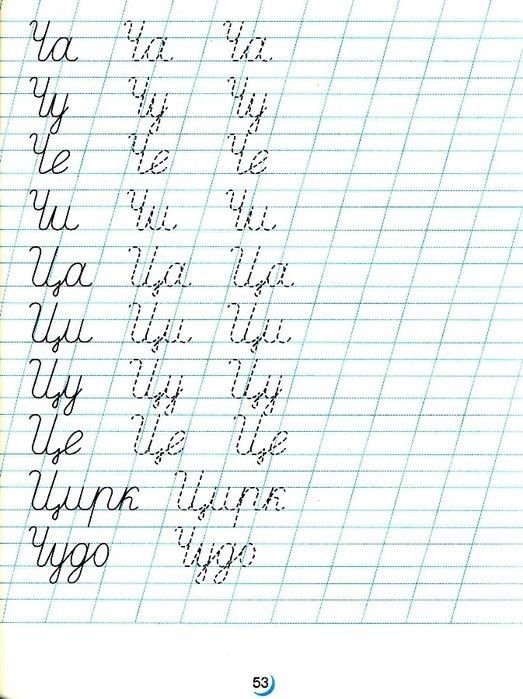 Ча Ча Ча
Чу Чу Чу
Че Че Че
Чи Чи Чи
Ца Ца Ца
Ци Ци Ци
Цу Цу Цу
Це Це Це
Цирк Цирк
Чудо Чудо
53